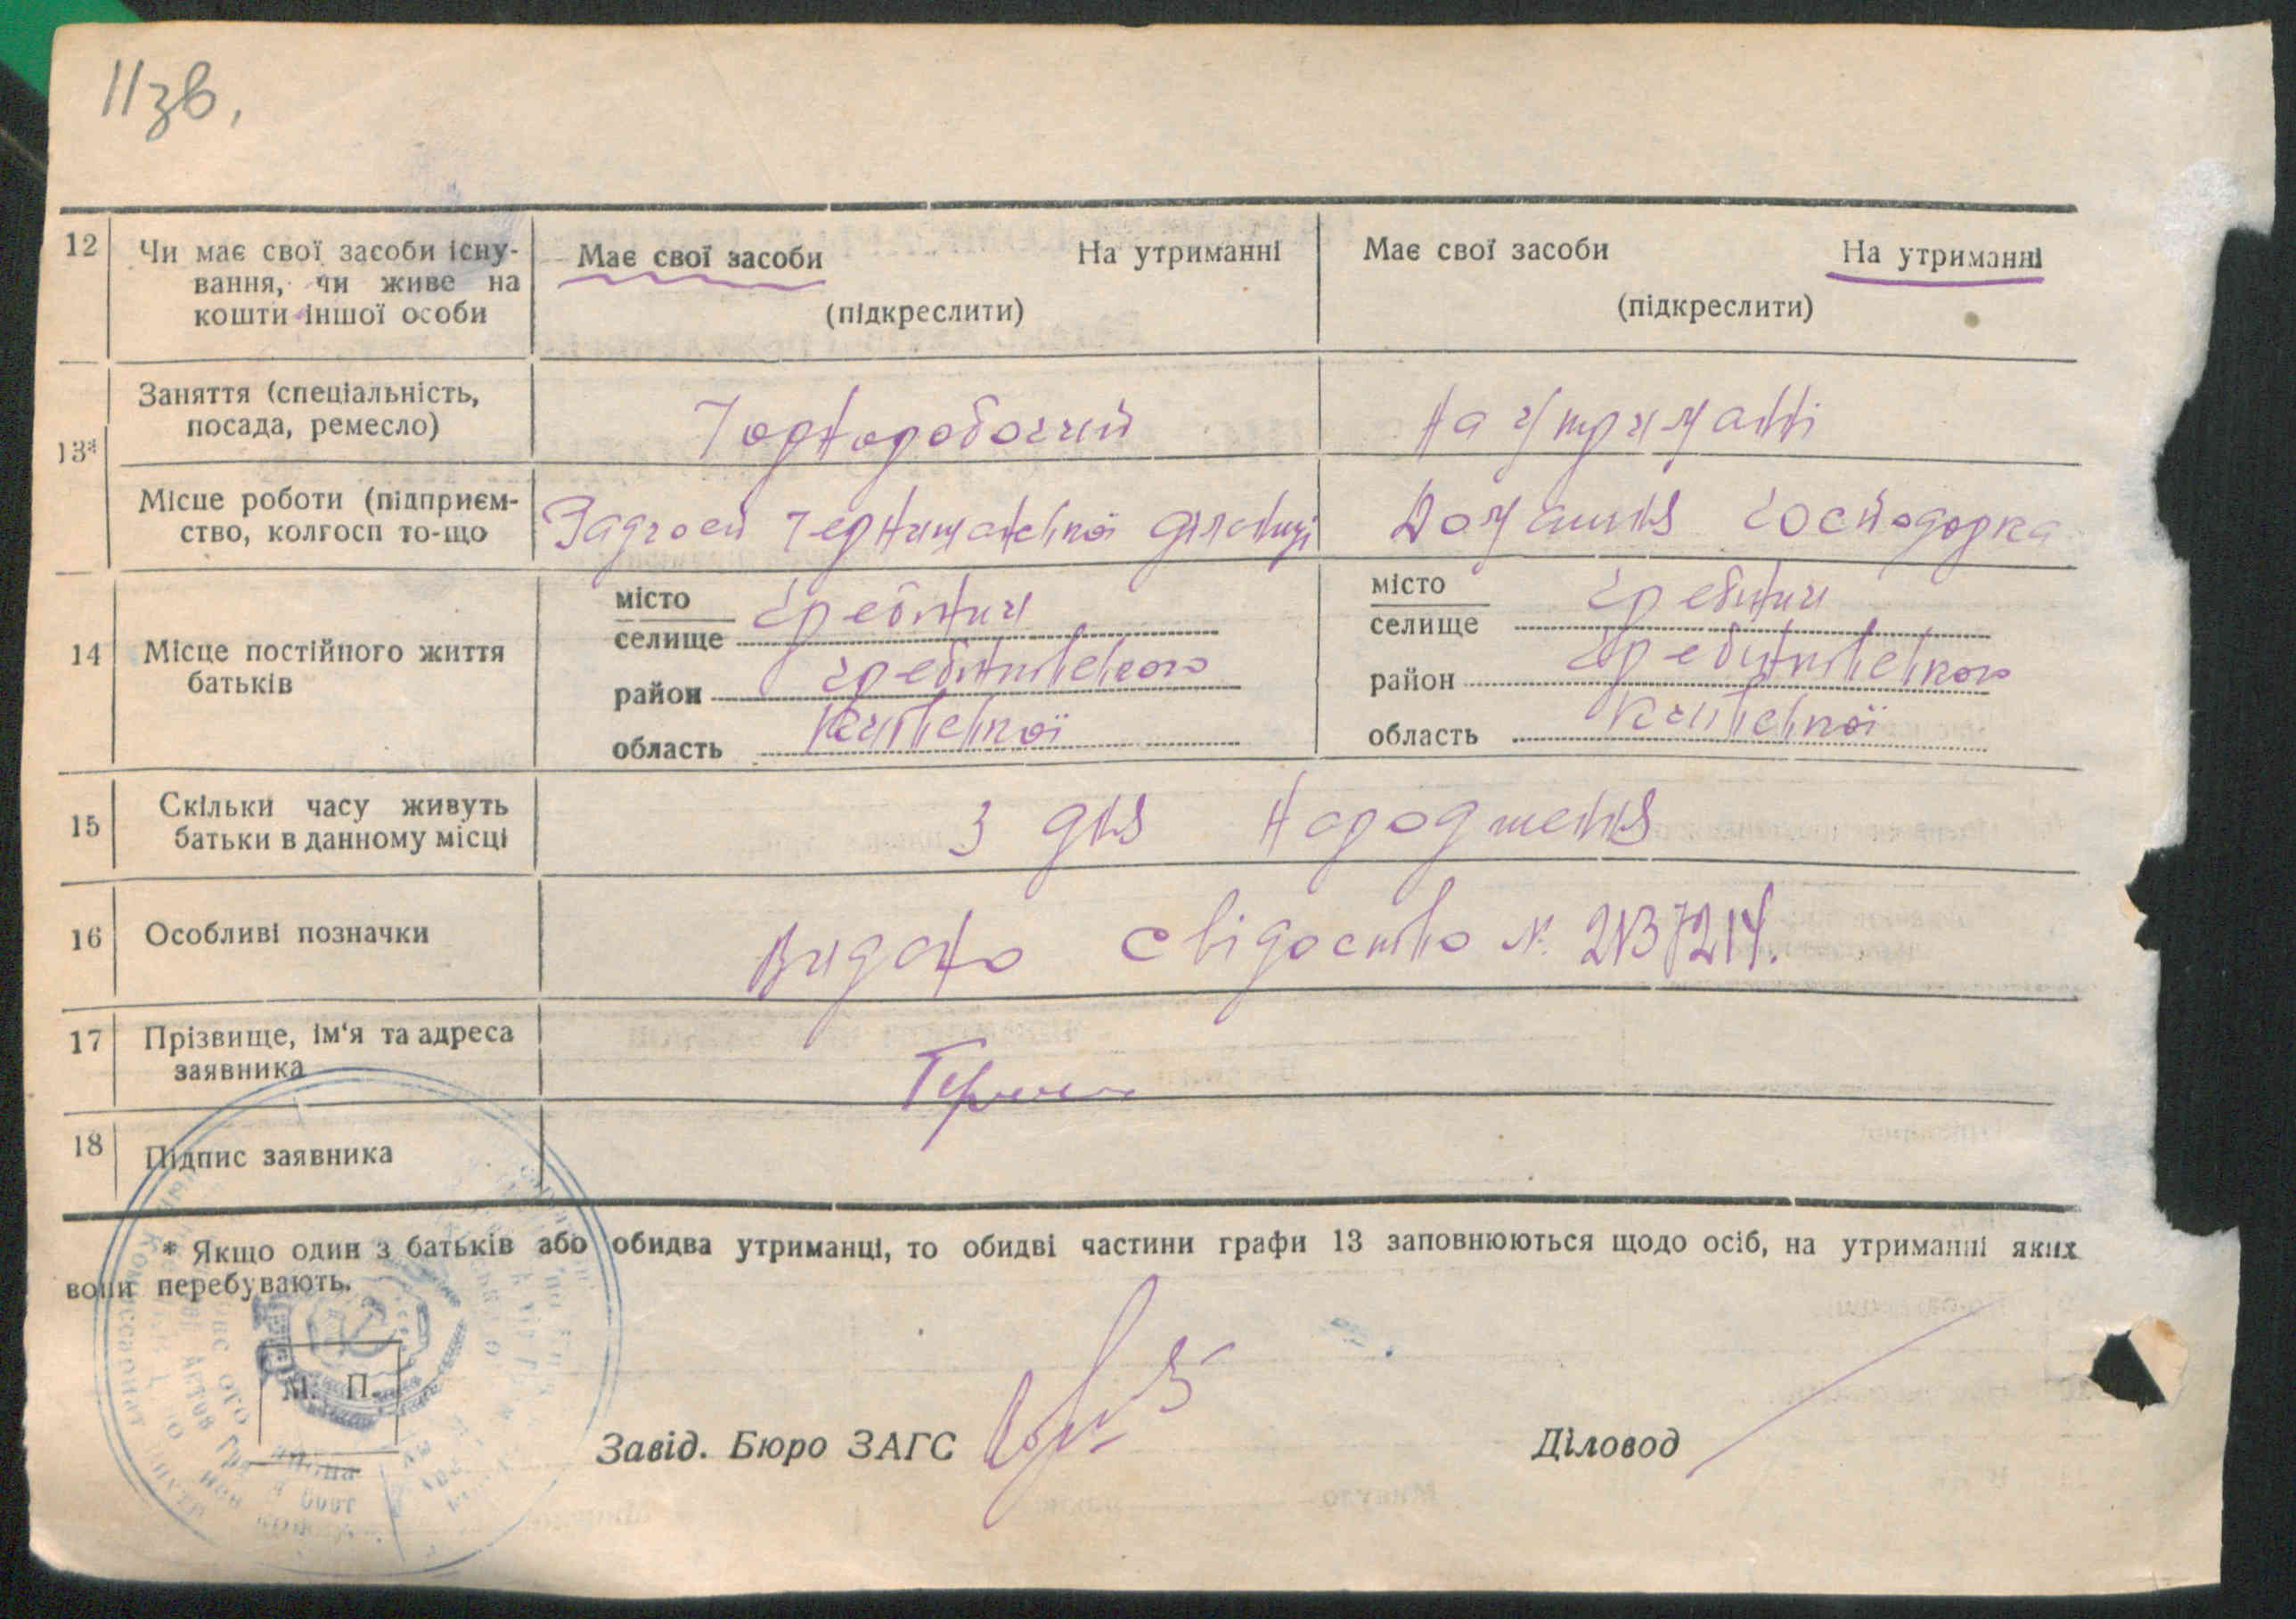 11зв.
12 Чи має свої засоби існу-
вання, чи живе на
кошти іншої особи
Має свої засоби На утриманні
(підкреслити)
Має свої засоби На утриманні
(підкреслити)
13*
Заняття (спеціальність,
посада, ремесло)
Чорноробочий
На утриманні
Місце роботи (підприєм-
ство, колгосп то-що
дільниці
Домашня господарка
14 Місце постійного життя
батьків
місто
селище Гребінки
район Гребінківського
область Київської
місто
селище Гребінки
район Гребінківського
область Київської
15 Скільки часу живуть
батьки в данному місці
З дня народження
16 Особливі позначки
Видано свідоство №
17 Прізвище, ім'я та адреса
заявника
18 Підпис заявника
* Якщо один з батьків або обидва утриманці, то обидві частини графи 13 заповнюються щодо осіб, на утриманні яких
вони перебувають.
М. П.
Завід. Бюро ЗАГС
Діловод